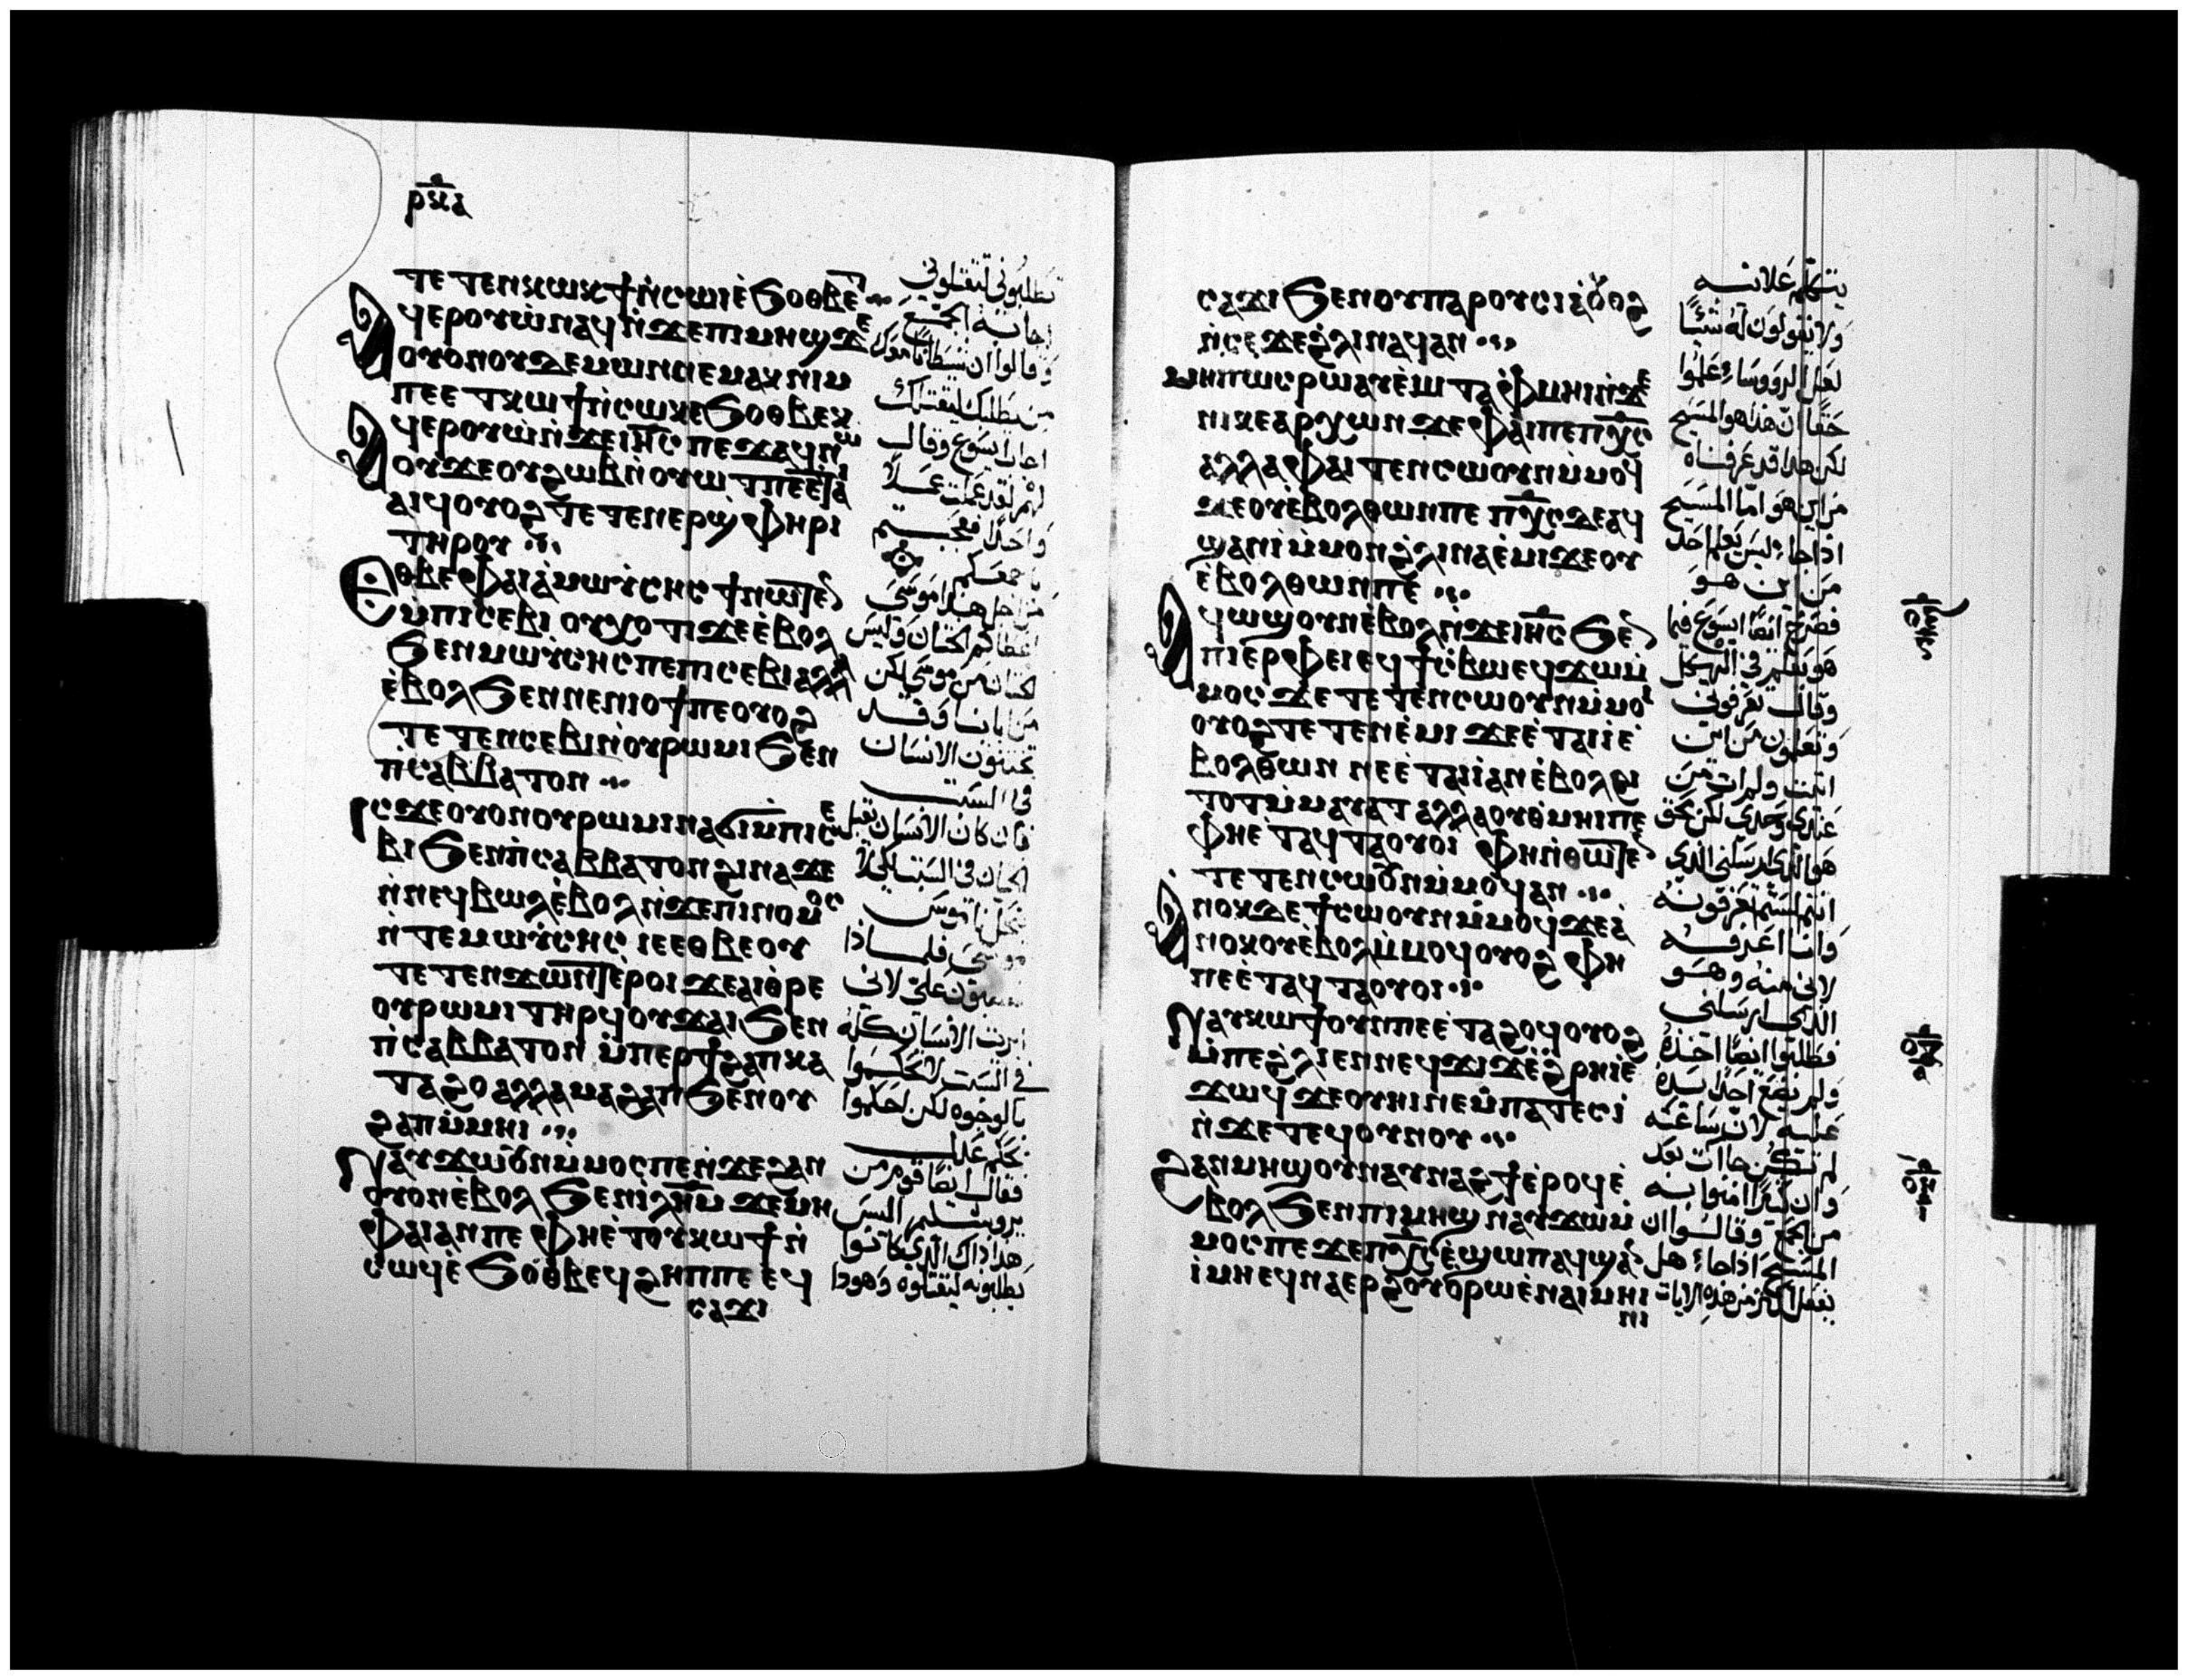 ⲣⲝⲁ
ⲧⲉⲧⲉⲛⲕⲱϯ ⲛ̇ⲥⲱⲓ ⲉ̇ϧⲟⲑⲃⲉⲧ
ⲁϥⲉⲣⲟⲩⲱ̇ ⲛⲁϥ ⲛ̇ϫⲉ ⲡⲓⲙⲏϣ ϫⲉ
ⲟⲩⲟⲛ ⲟⲩⲇⲉⲙⲱⲛ ⲛⲉⲙⲁⲕ ⲛⲓⲙ
ⲡⲉⲉⲧⲕⲱϯ ⲛ̇ⲥⲱⲕ ⲉϧⲟⲑⲃⲉⲕ
ⲁϥⲉⲣⲟⲩⲱ̇ ⲛ̇ϫⲉ ⲓⲏⲥ ⲡⲉϫⲁϥ ⲛⲱ
ⲟⲩ ϫⲉ ⲟⲩϩⲱⲃ ⲛ̇ⲟⲩⲱⲧ ⲡⲉⲉⲧⲁ
ⲁⲓϥ ⲟⲩⲟϩ ⲧⲉⲧⲉⲛⲉⲣϣⲫⲏⲣⲓ
ⲧⲏⲣⲟⲩ
ⲉⲑⲃⲉ ⲫⲁⲓ ⲁ̇ⲙⲱⲩ̇ⲥⲏⲥ ϯ ⲛⲱⲧⲉⲛ
ⲙ̇ⲡⲓⲥⲉⲃⲓ ⲟⲩⲭⲟⲧⲓ ϫⲉ ⲉ̇ⲃⲟⲗ
ϧⲉⲛ ⲙⲱⲩ̇ⲥⲏⲥ ⲡⲉ ⲡⲓⲥⲉⲃⲓ ⲁⲗⲗⲁ
ⲉ̇ⲃⲟⲗ ϧⲉⲛ ⲛⲉⲛⲓⲟϯ ⲡⲉ ⲟⲩⲟϩ
ⲧⲉⲧⲉⲛⲥⲉⲃⲓ ⲛ̇ⲟⲩⲣⲱⲙⲓ ϧⲉⲛ
ⲡ̇ⲥⲁⲃⲃⲁⲧⲟⲛ
ⲓⲥϫⲉ ⲟⲩⲟⲛ ⲟⲩⲣⲱⲙⲓ ⲛⲁϭⲓ ⲙ̇ⲡⲓⲥⲉ
ⲃⲓ ϧⲉⲛ ⲡ̇ⲥⲁⲃⲃⲁⲧⲟⲛ ϩⲓⲛⲁ ϫⲉ
ⲛ̇ⲛⲉϥⲃⲱⲗ ⲉ̇ⲃⲟⲗ ⲛ̇ϫⲉ ⲡⲓⲛⲟⲙⲟⲥ
ⲛ̇ⲧⲉ ⲙⲱⲩ̇ⲥⲏⲥ ⲓⲉ ⲉⲑⲃⲉⲟⲩ
ⲧⲉⲧⲉⲛϫⲱⲛⲧ ⲉ̇ⲣⲟⲓ ϫⲉ ⲁⲓⲑ̇ⲣⲉ
ⲟⲩⲣⲱⲙⲓ ⲧⲏⲣϥ ⲟⲩϫⲁⲓ ϧⲉⲛ
ⲡ̇ⲥⲁⲃⲃⲁⲧⲟⲛ ⲙ̇ⲡⲉⲣϯϩⲁⲡ ⲕⲁ
ⲧⲁ ϩⲟ ⲁⲗⲗⲁ ⲙⲁϩⲁⲡ ϧⲉⲛ ⲟⲩ
ϩⲁⲡ ⲙ̇ⲙⲏⲓ
ⲛⲁⲩϫⲱ ⲟⲩⲛ ⲙ̇ⲙⲟⲥ ⲡⲉ ⲛ̇ϫⲉ ϩⲁⲛ
ⲟⲩⲟⲛ ⲉ̇ⲃⲟⲗ ϧⲉⲛ ⲓⲗⲏⲙ ϫⲉ ⲙⲏ
ⲫⲁⲓ ⲁⲛ ⲡⲉ ⲫⲏⲉ̇ⲧⲟⲩⲕⲱϯ ⲛ̇
ⲥⲱϥ ⲉ̇ϧⲟⲑⲃⲉϥ ϩⲏⲡⲡⲉ ⲉϥ
ⲥⲁϫⲓ
تطلبوني لتقتلوني
اجابه الجمع
وقالوا ان شيطانا معك
من يطلبك ليقتلك
اجاب ايسوع وقال
لهم لقد عملت عملا
واحدا فتعجبتم
باجمعكم
من اجل هذا موسى
اعطاكم الختان وليس
الختان من موسى لكن
من ابائنا وقد
تختنون الانسان
في السبت
فان كان الانسان يقبل
الختان في السبت ليلا
ينحل ناموس
موسى فلماذا
علي لاني
ابريت الانسان كله
في السبت لا تحكموا
بالوجوه لكن احكموا
بحكم عدل
فقال ايضا قوم من
يروشليم اليس
هذا ذاك الذي كانوا
يطلبونه ليقتلوه وهوذا
ⲥⲁϫⲓ ϧⲉⲛ ⲟⲩⲡⲁⲣⲟⲩⲥⲓⲁ̇ ⲟⲩⲟϩ
ⲛ̇ⲥⲉϫⲉϩ̇ⲗⲓ ⲛⲁϥ ⲁⲛ
ⲙⲏⲡⲱⲥ ⲣⲱ ⲁⲩⲉ̇ⲙⲓ ⲧⲁⲫⲙⲏⲓ ⲛ̇ϫⲉ
ⲛⲓⲕⲉⲁⲣⲭⲱⲛ ϫⲉ ⲫⲁⲓ ⲡⲉ ⲡⲭⲥ
ⲁⲗⲗⲁ ⲫⲁⲓ ⲧⲉⲛⲥⲱⲟⲩⲛ ⲙ̇ⲙⲟϥ
ϫⲉ ⲟⲩⲉ̇ⲃⲟⲗ ⲑⲱⲛ ⲡⲉ ⲡⲭⲥ ⲇⲉ ⲁϥ
ϣⲁⲛⲓ̇ ⲙ̇ⲙⲟⲛ ϩ̇ⲗⲓ ⲛⲁⲉ̇ⲙⲓ ϫⲉ ⲟⲩ
ⲉ̇ⲃⲟⲗ ⲑⲱⲛ ⲡⲉ
ⲁϥⲱϣ ⲟⲩⲛ ⲉ̇ⲃⲟⲗ ⲛ̇ϫⲉ ⲓⲏⲥ ϧⲉⲛ
ⲡⲓⲉⲣⲫⲉⲓ ⲉϥϯⲥ̇ⲃⲱ ⲉϥϫⲱ ⲙ̇
ⲙⲟⲥ ϫⲉ ⲧⲉⲧⲉⲛⲥⲱⲟⲩⲛ ⲙ̇ⲙⲟⲓ
ⲟⲩⲟϩ ⲧⲉⲧⲉⲛⲉ̇ⲙⲓ ϫⲉ ⲉ̇ⲧⲁⲓⲓ̇ ⲉ̇
ⲃⲟⲗ ⲑⲱⲛ ⲛⲉ ⲉ̇ⲧⲁⲓⲓ̇ ⲁⲛ ⲉ̇ⲃⲟⲗ ϩⲓ
ⲧⲟⲧ ⲙ̇ⲙⲁⲩⲁⲧ ⲁⲗⲗⲁ ⲟⲩⲑ̇ⲙⲏⲓ ⲡⲉ
ⲫⲏⲉⲧⲁϥⲧⲁⲟⲩⲟⲓ ⲫⲏ ⲛ̇ⲑⲱⲧⲉⲛ
ⲧⲉⲧⲉⲛⲥⲱⲟⲩⲛ ⲙ̇ⲙⲟϥ ⲁⲛ
ⲁⲛⲟⲕ ⲇⲉ ϯⲥⲱⲟⲩⲛ ⲙ̇ⲙⲟϥ ϫⲉ ⲁ̇
ⲛⲟⲕ ⲟⲩⲉ̇ⲃⲟⲗ ⲙ̇ⲙⲟϥ ⲟⲩⲟϩ ⲫⲏ
ⲡⲉ ⲉ̇ⲧⲁϥⲧⲁⲟⲩⲟⲓ
ⲛⲁⲩⲕⲱϯ ⲟⲩⲛ ⲡⲉ ⲉ̇ⲧⲁϩⲟϥ ⲟⲩⲟϩ
ⲙ̇ⲡⲉ ϩ̇ⲗⲓ ⲉⲛ ⲛⲉϥϫⲓϫ ⲉ̇ϩ̇ⲣⲏⲓ ⲉ̇
ϫⲱϥ ϫⲉ ⲟⲩⲏⲓ ⲛⲉ ⲙ̇ⲡⲁⲧⲉⲥⲓ̇
ⲛ̇ϫⲉ ⲧⲉϥⲟⲩⲛⲟⲩ
ϩⲁⲛⲙⲏϣ ⲟⲩⲛ ⲁⲩⲛⲁϩϯ ⲉ̇ⲣⲟϥ ⲉ̇
ⲃⲟⲗ ϧⲉⲛ ⲡⲓⲙⲏϣ ⲛⲁⲩϫⲱ ⲙ̇
ⲙⲟⲥ ⲡⲉ ϫⲉ ⲡⲭⲥ ⲉ̇ϣⲱⲡ ⲁϥϣⲁⲛ
ⲓ̇ ⲙⲏ ⲉϥⲛⲁⲉⲣ ϩⲟⲩⲟ̇ ⲣⲱ ⲉ̇ⲛⲁⲓⲙⲏⲓ
ⲛⲓ
يتكلم علانيه
ولا يقولون له شيئا
لعل الروسا علموا
حقا ان هذا هو المسيح
لكن هذا قد عرفناه
من اين هو اما المسيح
اذا جا ليس يعلم احد
من اين هو
فصرخ ايضا ايسوع فيما
هو يعلم في الهيكل
وقال تعرفوني
وتعلمون من اين
اتيت ولم ات من
عندي وحدي لكن بحق
هو الذي ارسلني الذي
انتم لستم تعرفونه
وانا اعرفه
لاني منه وهو
الذي ارسلني
فطلبوا ايضا اخذه
ولم يضع احد يده
عليه لان ساعته
لم تكن جاات بعد
وان كثيرا امنوا به
من الجمع وقالوا ان
المسيح اذا جاء هل
يفعل اكثر من هذه الايات